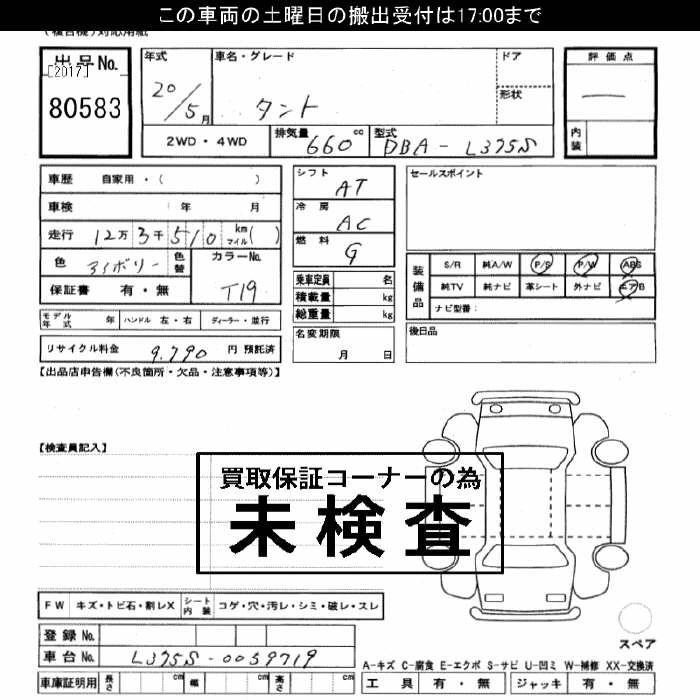 この車両の土曜日の搬出受付は17:00まで
(複合機)対応用紙
出品No.
[2017]
80583
年式
20/5月
車名・グレード
タント
ドア
形状
評価点
—
内装
2WD・4WD
排気量
660 cc
型式
DBA-L375S
車歴 自家用・( )
車検 年 月
走行 12万3千510 kmマイル( )
色 アイボリー 色替
カラーNo.
T19
保証書 有・無
シフト
AT
冷房
AC
燃料
G
乗車定員 名
積載量 kg
総重量 kg
セールスポイント
装備品
S/R 純A/W P/S P/W ABS
純TV 純ナビ 革シート 外ナビ エアB
ナビ型番:
モデル年式 年 ハンドル 左・右 ディーラー・並行
リサイクル料金 9.790 円 預託済
名変期限
月 日
後日品
【出品店申告欄(不良箇所・欠品・注意事項等)】
【検査員記入】
買取保証コーナーの為
未検査
FW キズ・トビ石・割レX シート内装 コゲ・穴・汚レ・シミ・破レ・スレ
登録No.
車台No. L375S-0059719
車庫証明用 長さ cm 幅 cm 高さ cm
スペア
A-キズ C-腐食 E-エクボ S-サビ U-凹ミ W-補修 XX-交換済
工具 有・無 ジャッキ 有・無